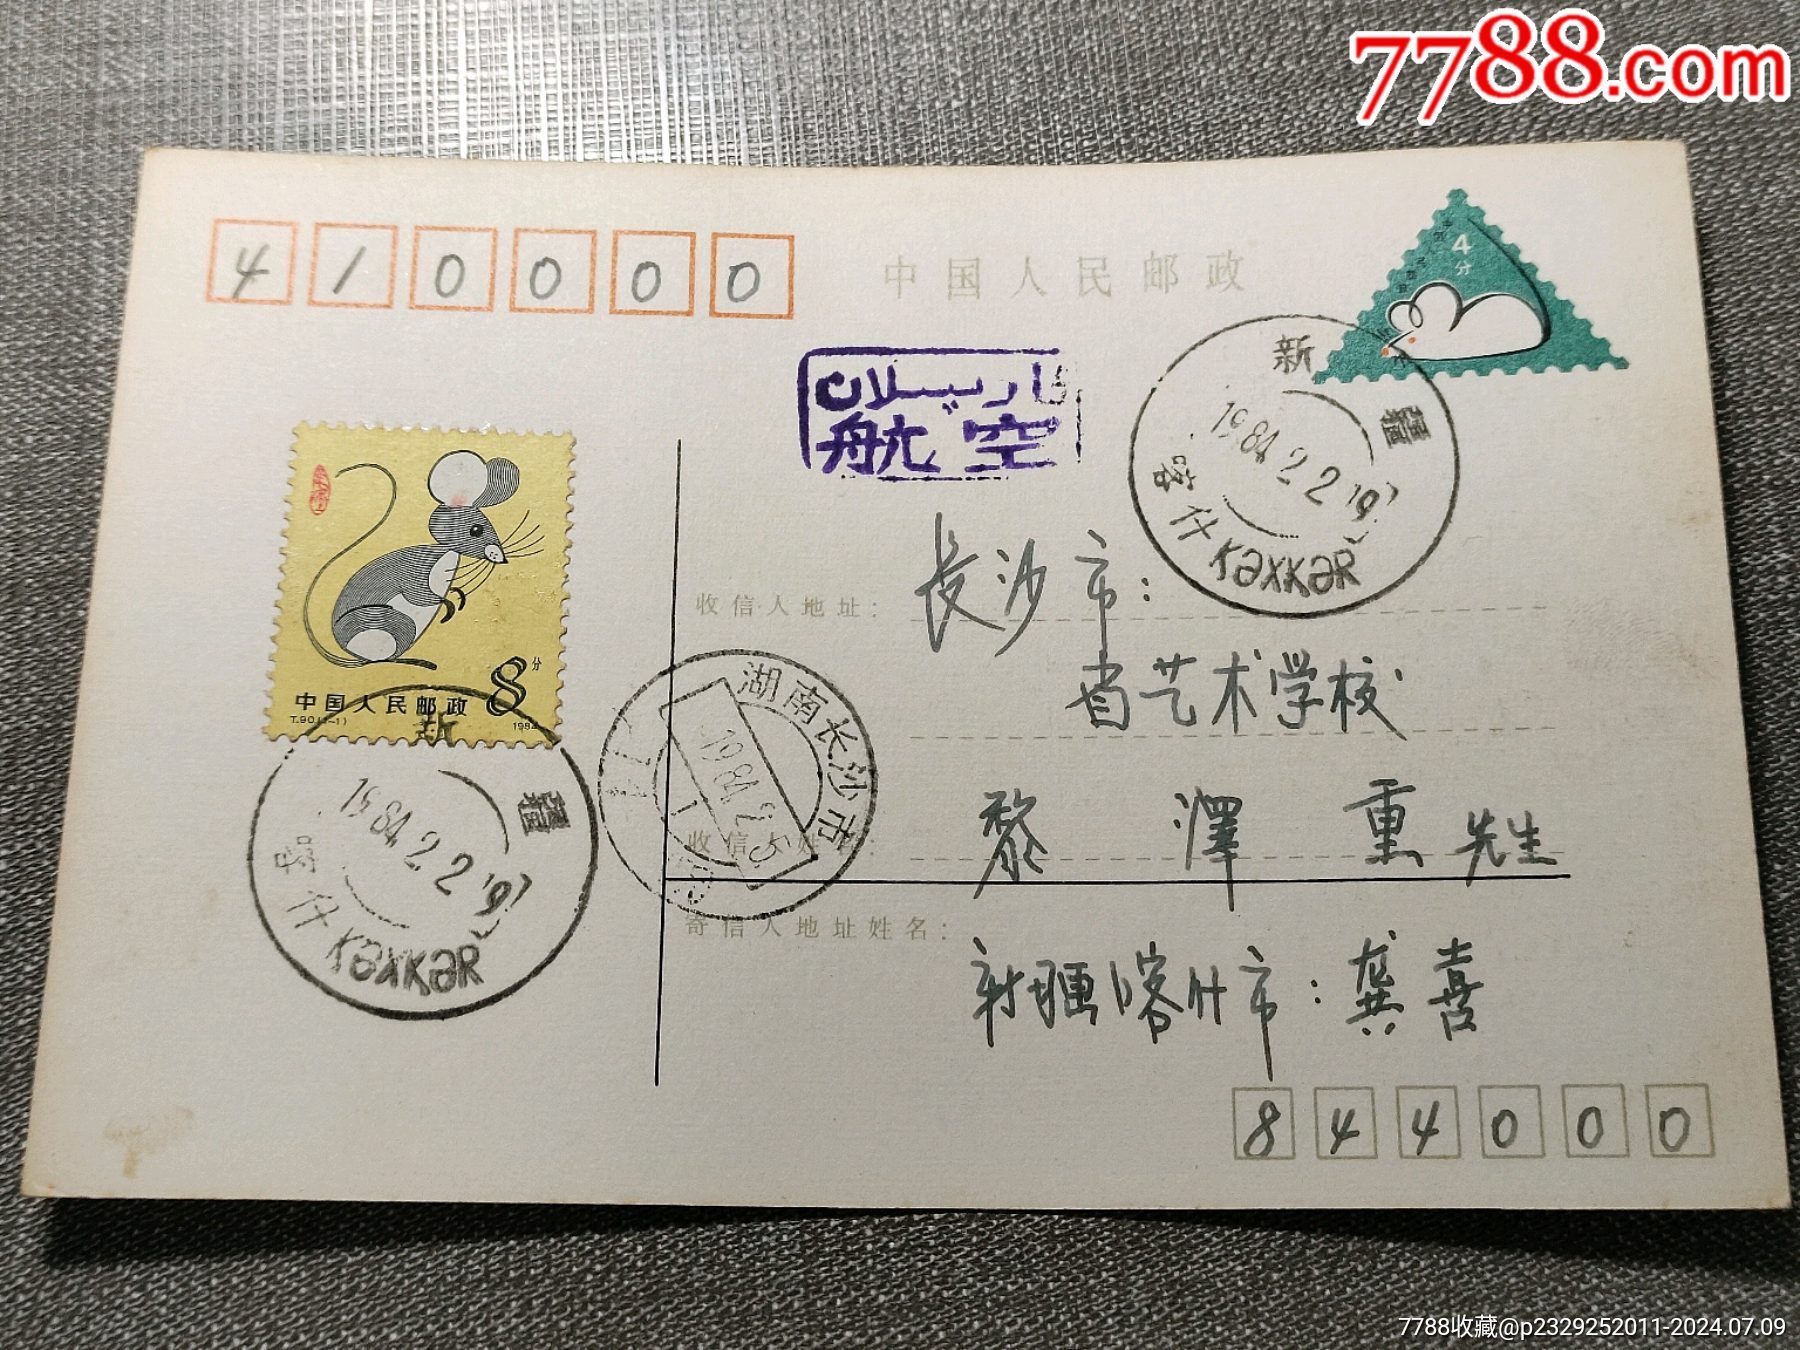 7788.com
410000
中国人民邮政
4
分
航空
新疆
1984.2.2.19
喀什 KəXKəR
8
分
中国人民邮政
T.90.(1-1)
1984
收信人地址:
长沙市:
省艺术学校
湖南长沙市
1984.2.15
收信人姓名:
黎澤重先生
新疆
1984.2.2.19
喀什 KəXKəR
寄信人地址姓名:
新疆喀什市:龚喜
844000
7788收藏@p2329252011-2024.07.09